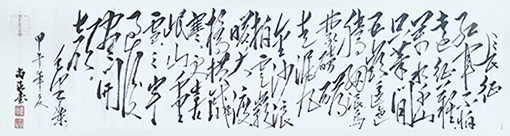 长征
红军不怕
远征难
万水千山
只等闲
五岭逶迤
腾细浪
乌蒙磅礴
走泥丸
金沙浪
拍云崖
暖大渡
桥横铁索
寒更喜
岷山千里
雪三军
过后
尽开
甲午年